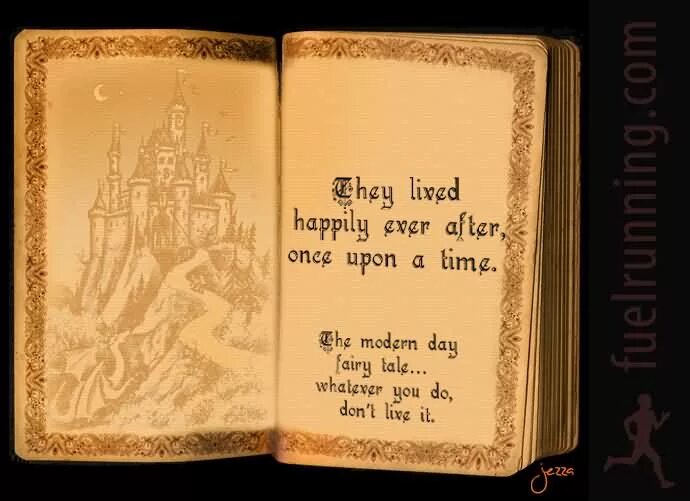 They lived
happily ever after,
once upon a time.
The modern day
fairy tale...
whatever you do,
don't live it.
jezza
fuelrunning.com